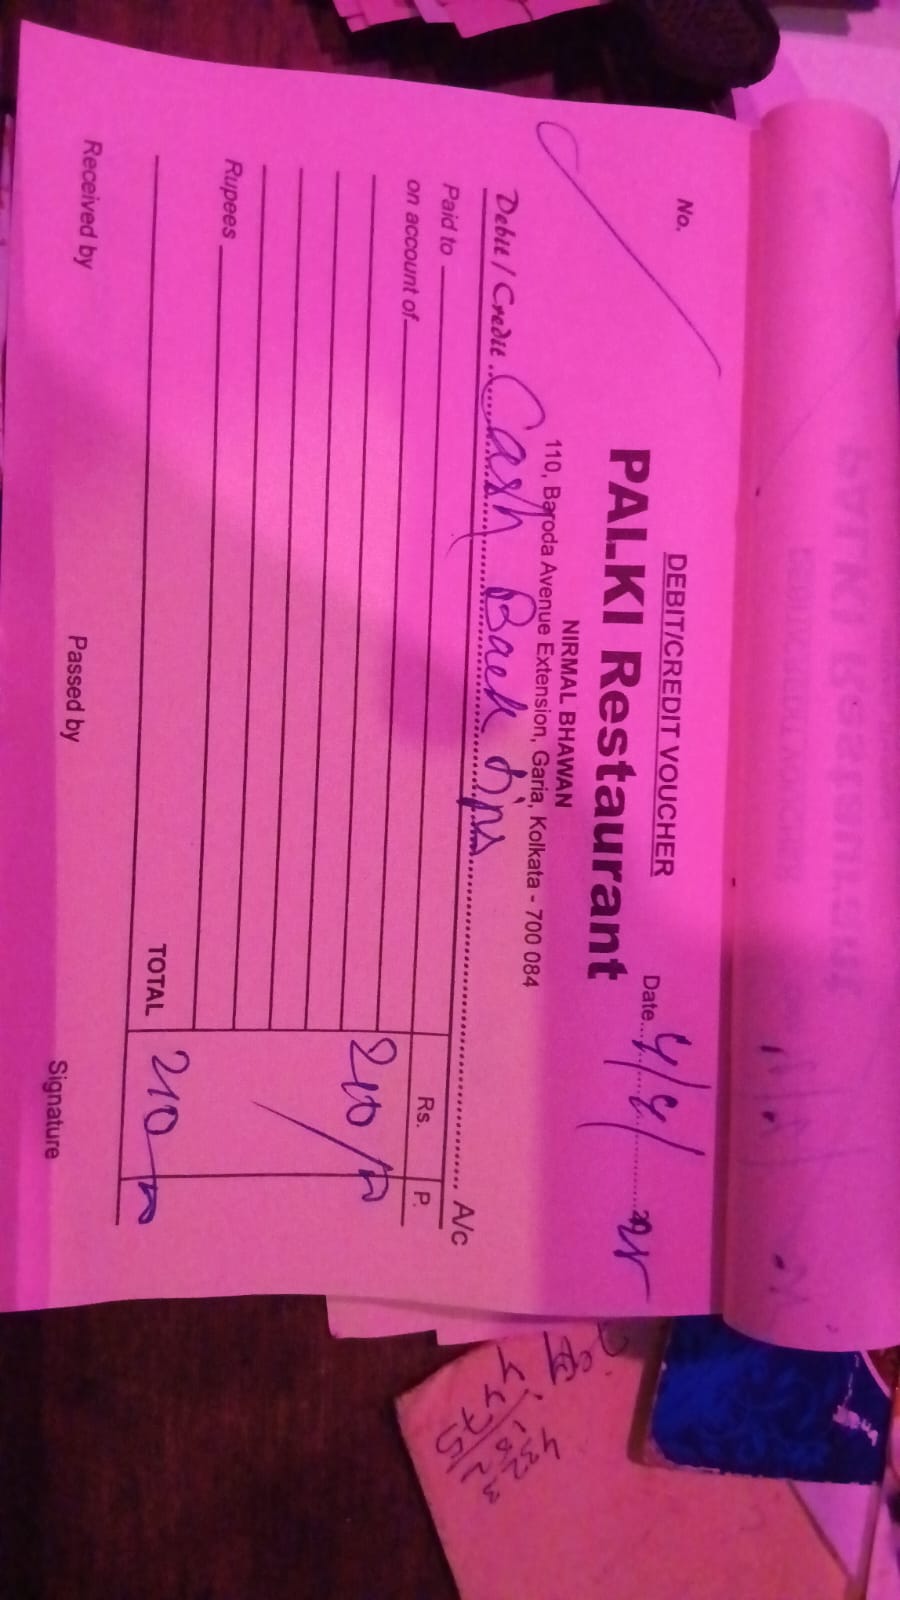 DEBIT/CREDIT VOUCHER
No.
Date... 4/4/25
PALKI Restaurant
NIRMAL BHAWAN
110, Baroda Avenue Extension, Garia, Kolkata - 700 084
Debit / Credit Cash Back tips A/c
Paid to
Rs. P.
on account of
210/00
Rupees
TOTAL 210 00
Received by Passed by Signature